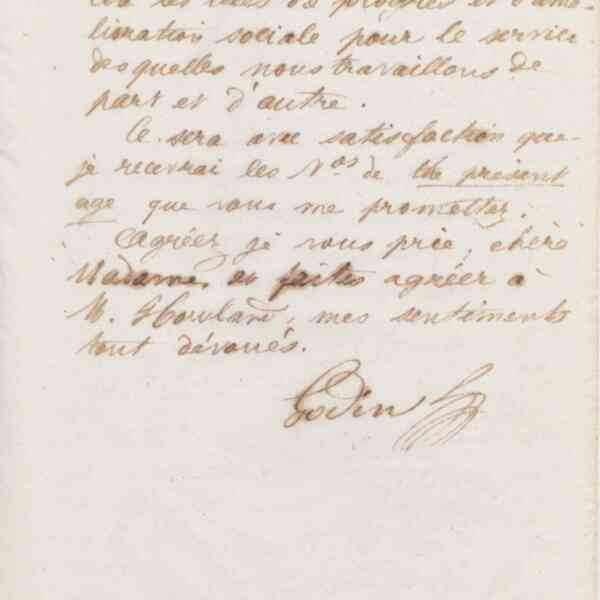 les idées de progrès et d'amé-
lioration sociale pour le service
desquelles nous travaillons de
part et d'autre.
Ce sera avec satisfaction que
je recevrai les Nos de the present
age que vous me promettez.
Agréez, je vous prie, chère
Madame, et faites agréer à
M. Howland, mes sentiments
tout dévoués.
Godin